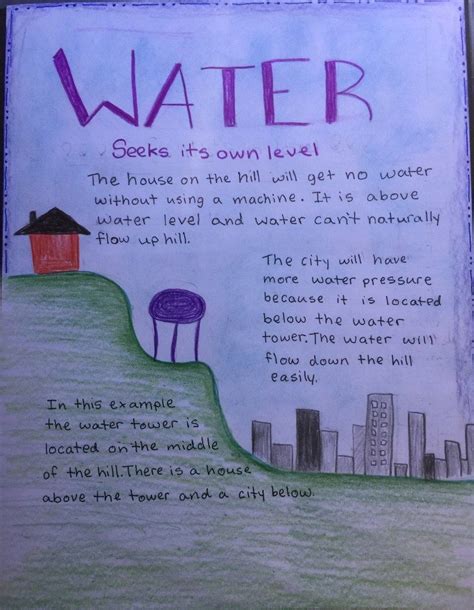 WATER
Seeks its own level
The house on the hill will get no water
without using a machine. It is above
water level and water can't naturally
flow up hill.
The city will have
more water pressure
because it is located
below the water
tower. The water will
flow down the hill
easily.
In this example
the water tower is
located on the middle
of the hill. There is a house
above the tower and a city below.